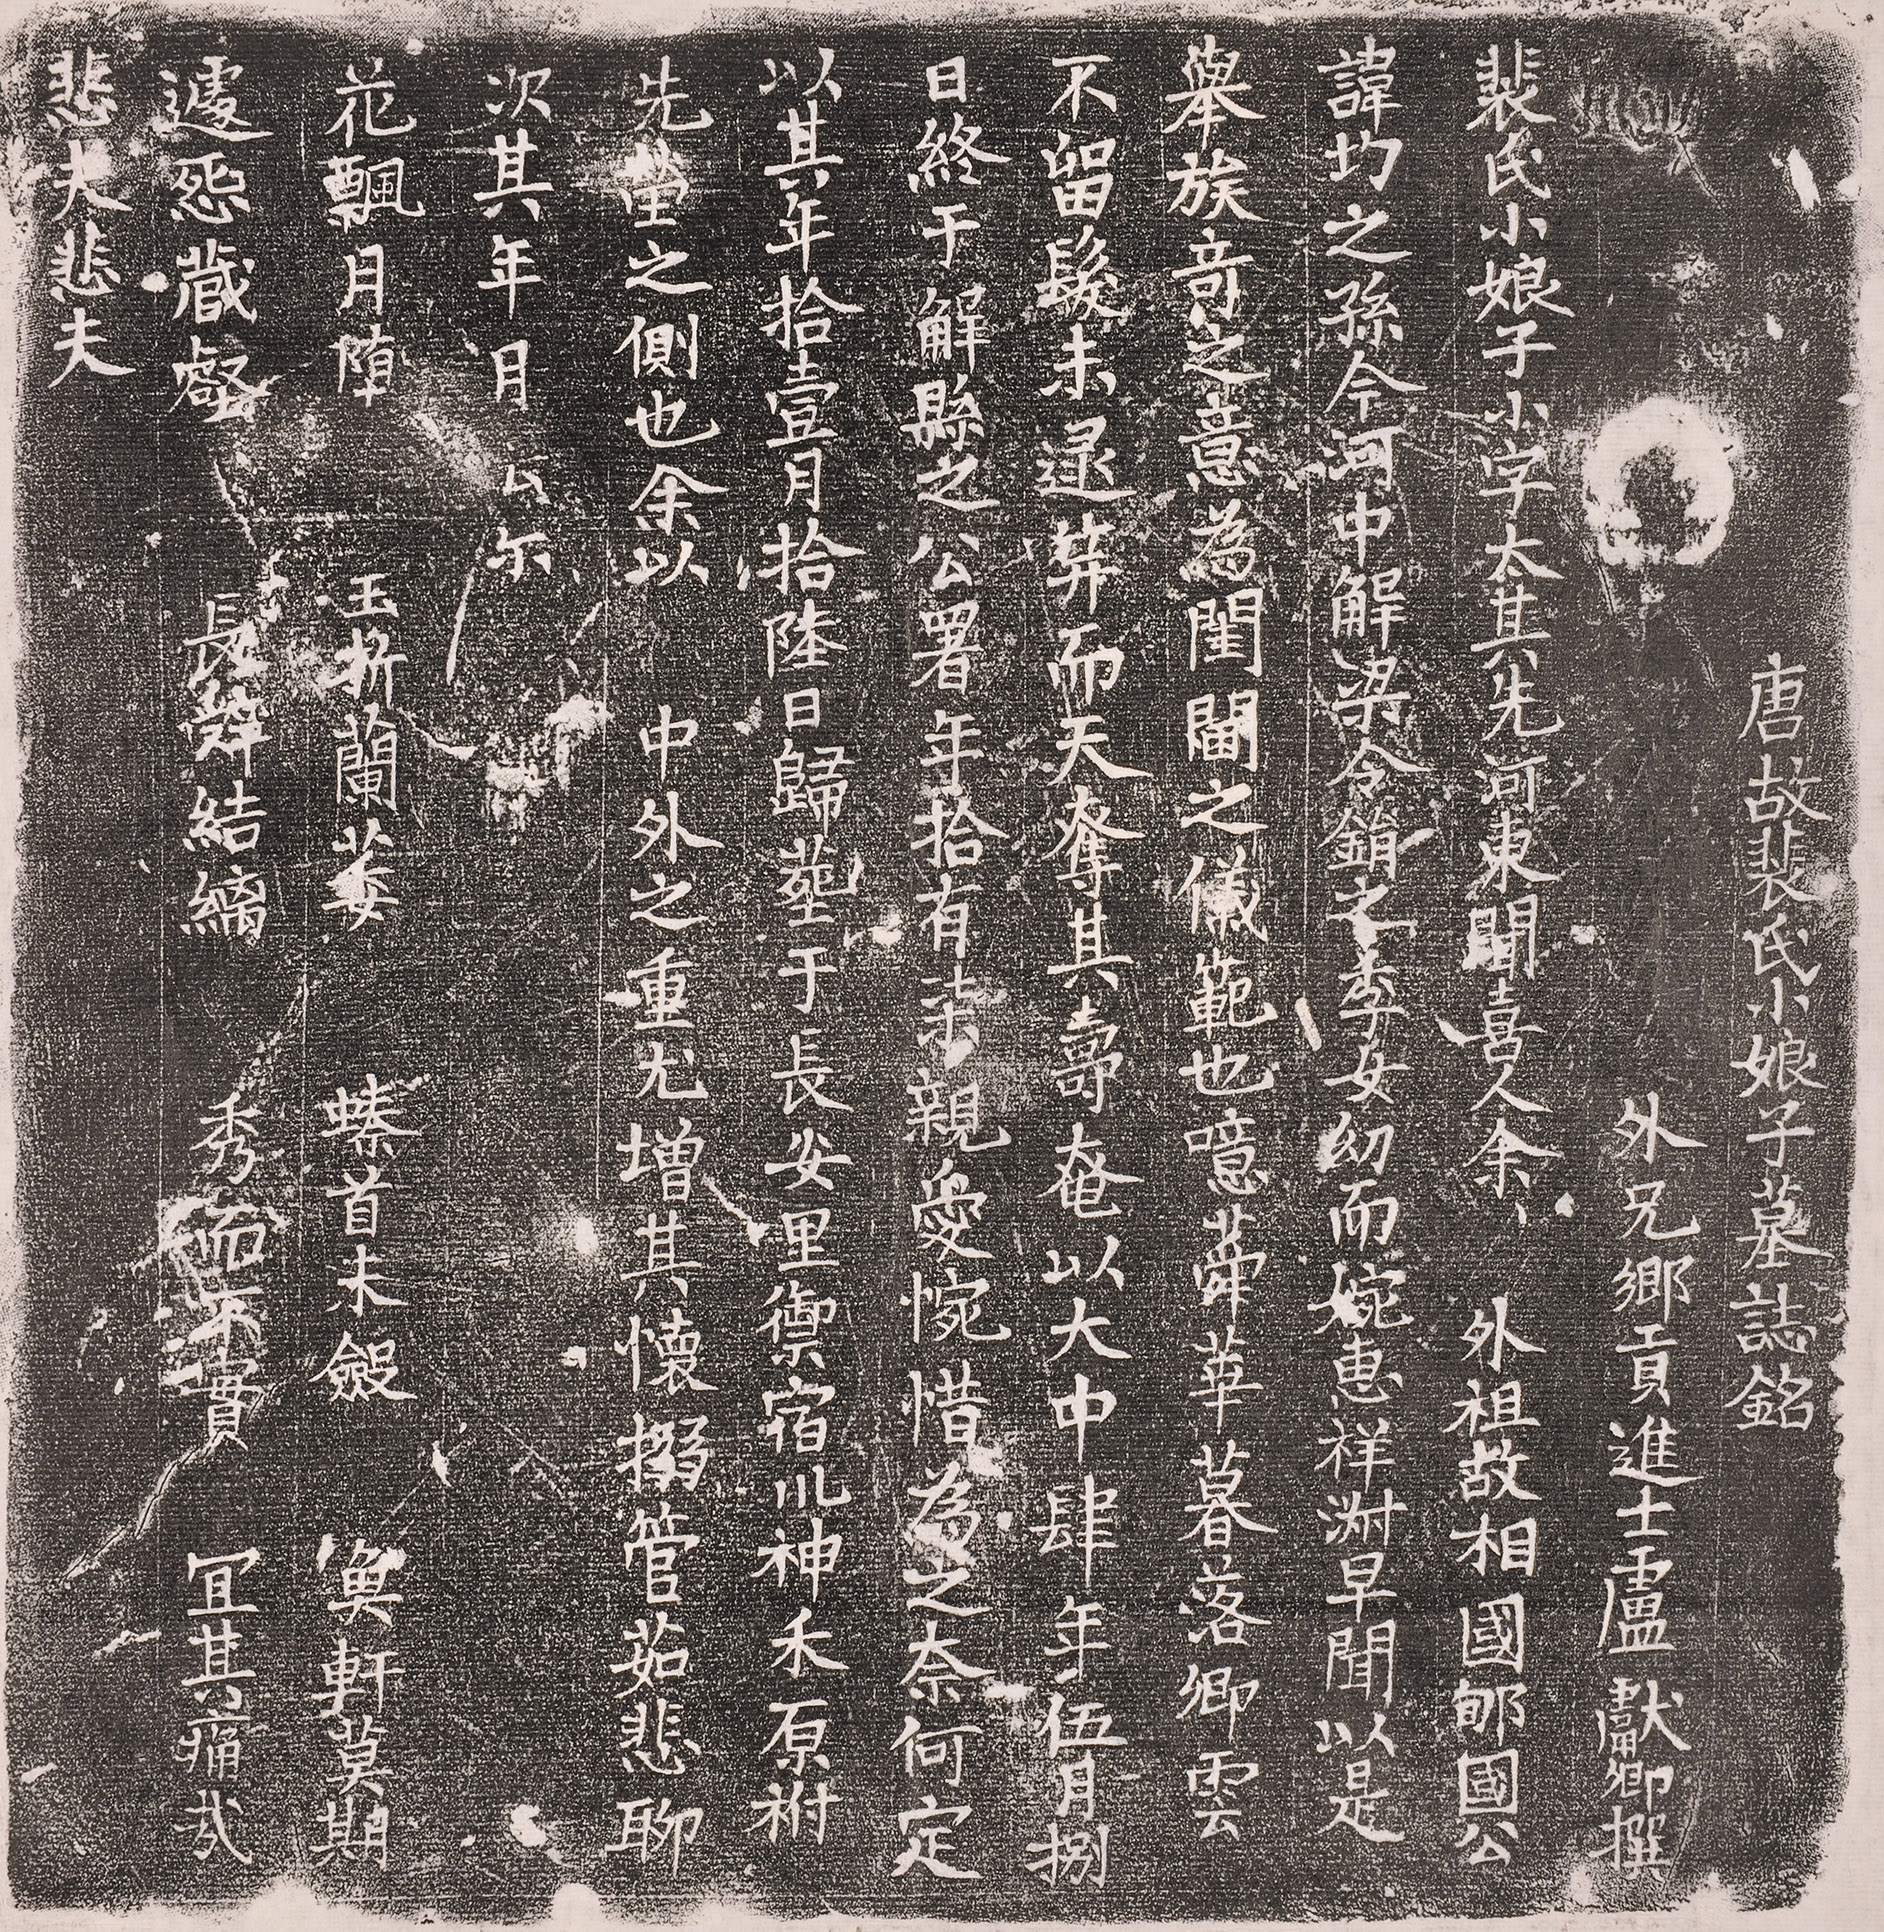 唐故裴氏小娘子墓誌銘
外兄鄉貢進士盧獻卿撰
裴氏小娘子小字太其先河東聞喜人余外祖故相國郇國公
諱均之孫今河中解梁令鋿之季女幼而婉惠祥淑早聞以是
舉族奇之意為閨閫之儀範也噫蕣華暮落卿雲
不留髮未逮笄而天奪其壽奄以大中肆年伍月捌
日終于解縣之公署年拾有柒親愛惋惜為之奈何定
以其年拾壹月拾陸日歸塟于長安里御宿川神禾原祔
先塋之側也余以中外之重尤增其懷搦管茹悲聊
次其年月云尔
花飄月墮玉折蘭萎螓首未斂輿軒莫期
遽怨藏壑長辭結縭秀而不實冝其痛哉
悲夫悲夫